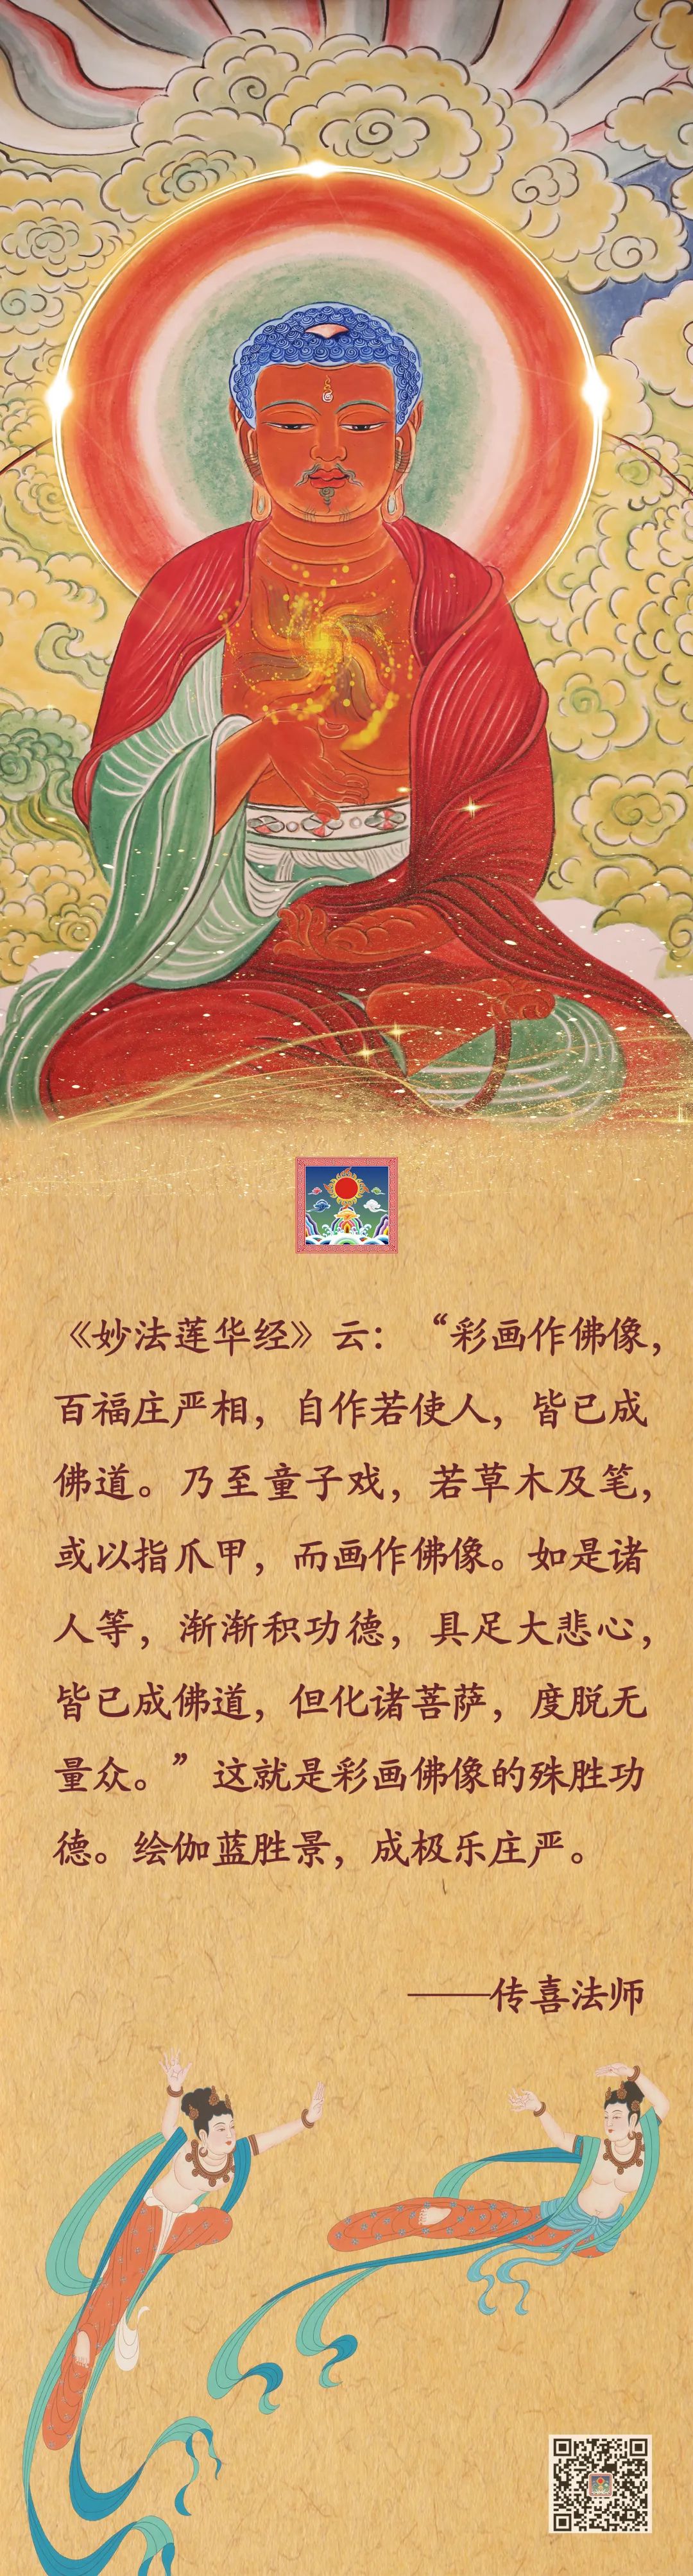 《妙法莲华经》云：“彩画作佛像，
百福庄严相，自作若使人，皆已成
佛道。乃至童子戏，若草木及笔，
或以指爪甲，而画作佛像。如是诸
人等，渐渐积功德，具足大悲心，
皆已成佛道，但化诸菩萨，度脱无
量众。”这就是彩画佛像的殊胜功
德。绘伽蓝胜景，成极乐庄严。
——传喜法师